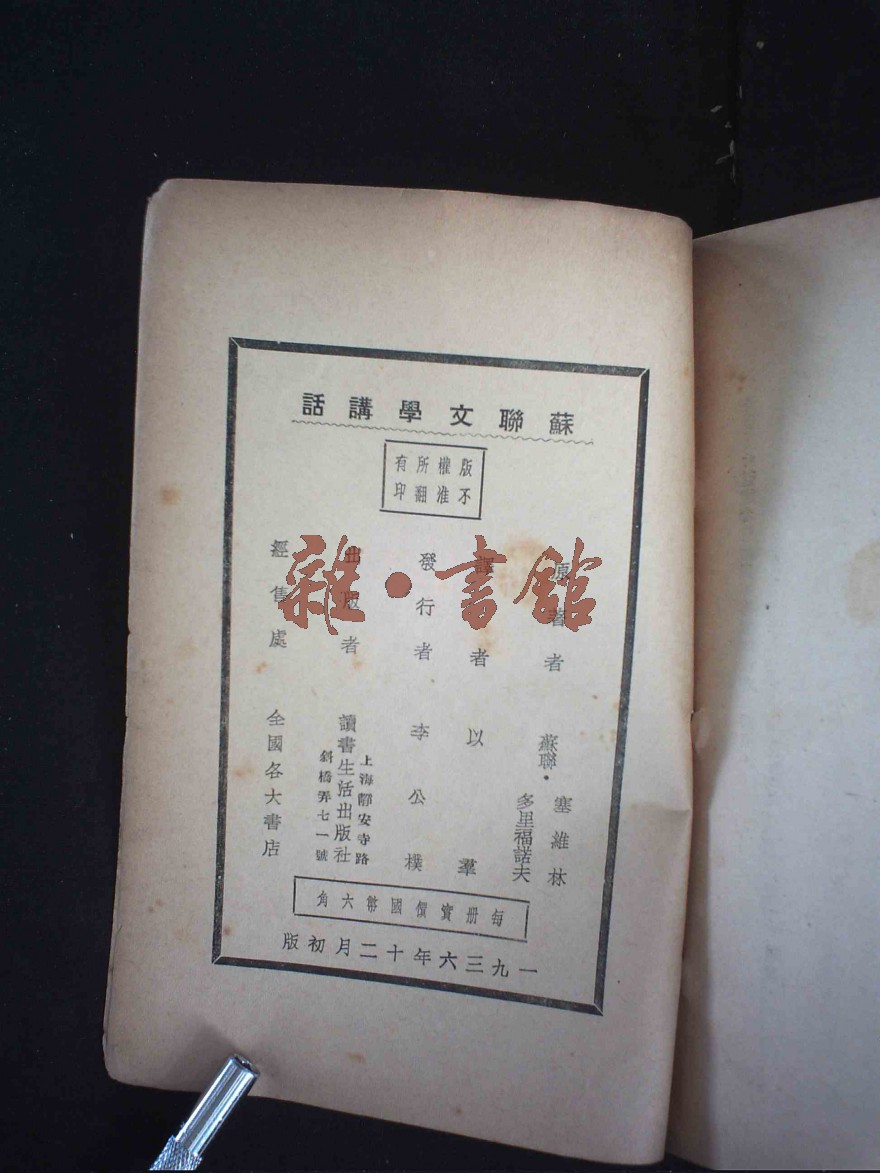 蘇聯文學講話
版權所有
不准翻印
原著者 蘇聯·塞維林
多里福諾夫
譯者 以羣
發行者 李公樸
出版者 讀書生活出版社
上海靜安寺路
斜橋弄七一號
經售處 全國各大書店
每册實價國幣六角
一九三六年十二月初版
雜·書館